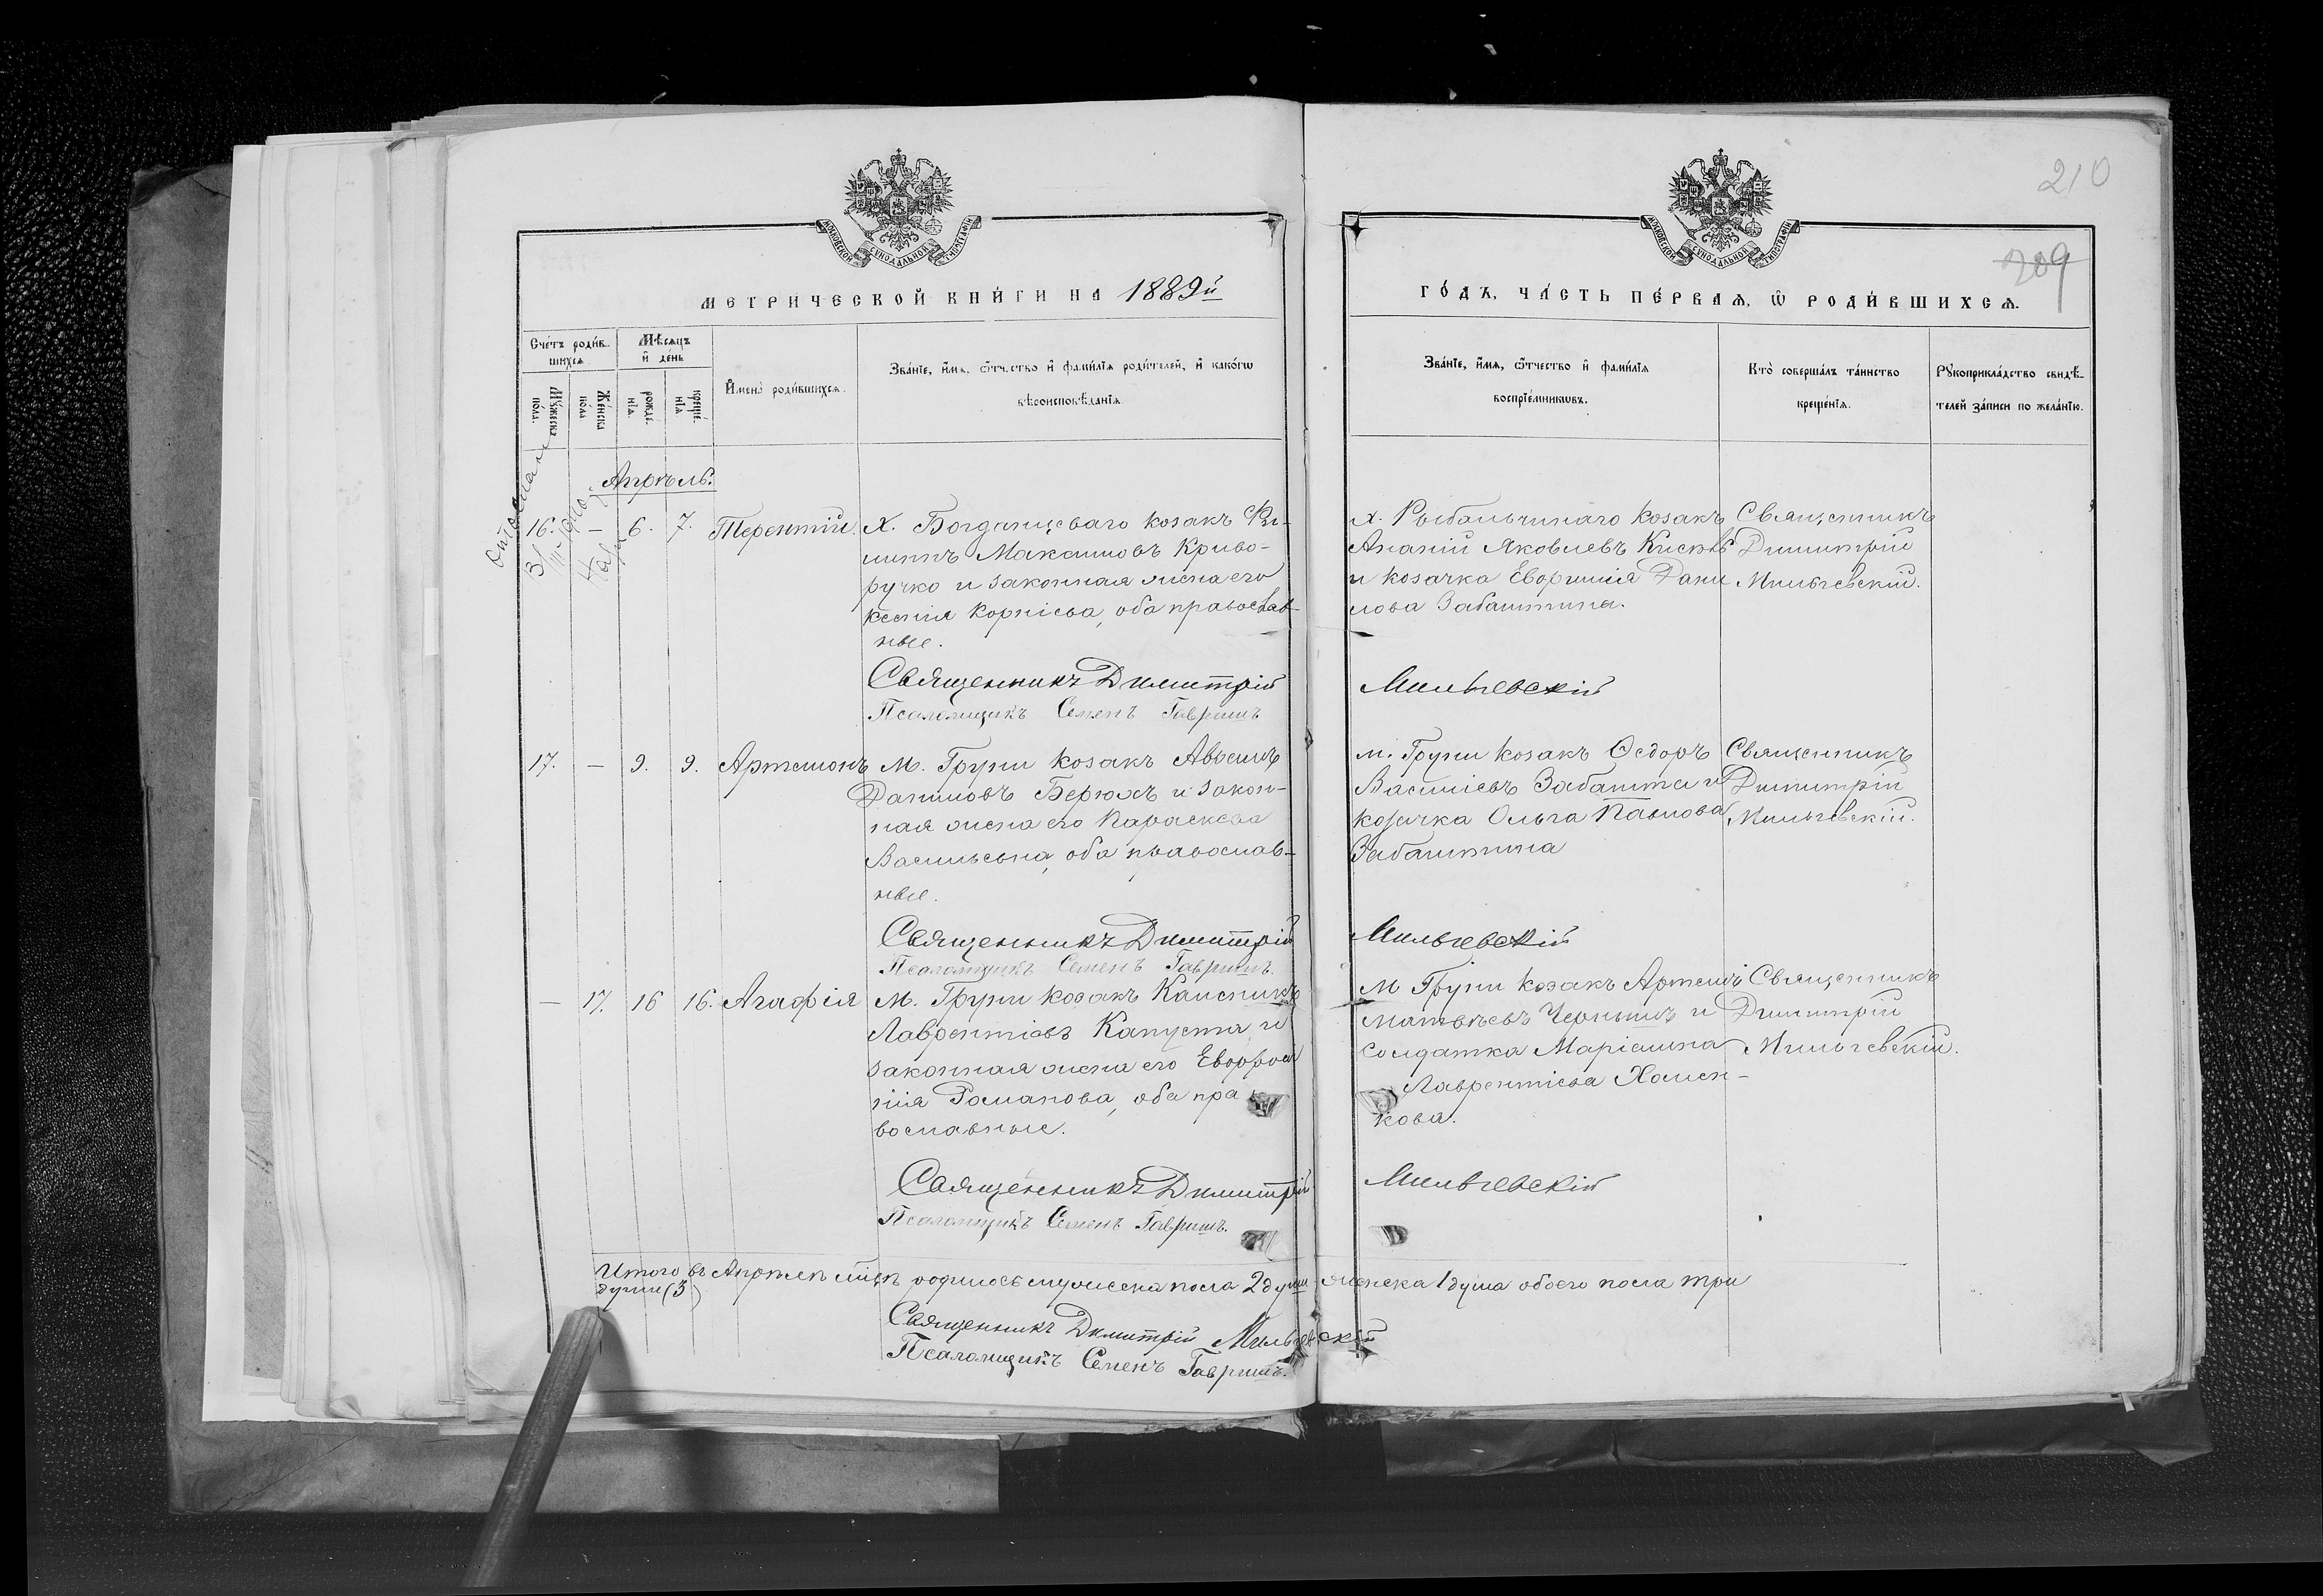 210
209
МОСКОВСКОЙ СѴНОДАЛЬНОЙ ТИПОГРАФІИ
МОСКОВСКОЙ СѴНОДАЛЬНОЙ ТИПОГРАФІИ
МЕТРИЧЕСКОЙ КНИ́ГИ НА 1889й
ГО́ДЪ, ЧА́СТЬ ПЕ́РВАѦ, Ѿ РОДИ́ВШИХСѦ.
Сче́тъ роди́в-
шихсѧ
Мѣсѧцъ
и҆ де́нь
Мꙋ́жеска по́ла.
Же́нска по́ла
рожде́-нїѧ.
креще́-нїѧ.
И҆мена̀ роди́вшихсѧ.
Зва́нїе, и҆́мѧ, ѻ҆́тчество и҆ фами́лїѧ роди́телей, и҆ како́гѡ
вѣроисповѣ́данїѧ
Зва́нїе, и҆́мѧ, ѻ҆́тчество и҆ фами́лїѧ
воспрїе́мникѡвъ.
Кто̀ соверша́лъ та́инство
креще́нїѧ.
Рꙋкоприкла́дство свидѣ́-
телей за́писи по жела́нїю.
Апрѣль.
16. — 6. 7. Терентій. Х. Богданцеваго козакъ Фи-
липпъ Максимовъ Криво-
ручко и законная жена его
Ксенія Корніева, оба православ-
ные.
Священникъ Димитрій
Псаломщикъ Семенъ Гавришъ
х. Рыбальчинаго козакъ
Ананій Яковлевъ
и козачка Евфимія Дани
лова Забаштина.
Священникъ
Димитрій
Мильчевскій.
Мильчевскій
17. — 9. 9. Артемонъ М. Груни козакъ Авксентій
Даниловъ Берюхъ и закон-
ная жена его Параскева
Васильевна, оба православ-
ные.
Священникъ Димитрій
Псаломщикъ Семенъ Гавришъ.
м. Груни козакъ Ѳедоръ
Василіевъ Забашта и
козачка Ольга Павлова
Забаштина
Священникъ
Димитрій
Мильчевскій.
Мильчевскій
— 17. 16 16. Агафія М. Груни козакъ
Лаврентіевъ Капуста и
законная жена его Евфроси
нія Романова, оба пра
вославные.
Священникъ Димитрій
Псаломщикъ Семенъ Гавришъ.
м Груни козакъ Артемій
Матвѣевъ Чернышъ и
солдатка Маріамна
Лаврентіева Хомен-
кова.
Священникъ
Димитрій
Мильчевскій.
Мильчевскій
Итого въ Апрѣлѣ мцѣ родилось мужеска пола 2 души женска 1 душа обоего пола три
души (3)
Священникъ Димитрій Мильчевскій
Псаломщикъ Семенъ Гавришъ.